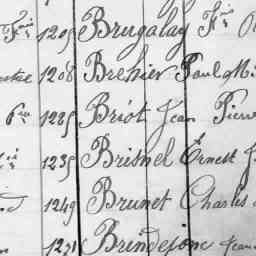 1205 Brugalay Fois
1208 Brehier Paul
1285 Briot Jean Pierre
1235 Brisnel Ernest J
1249 Brunet Charles
1271 Brindejonc Jean